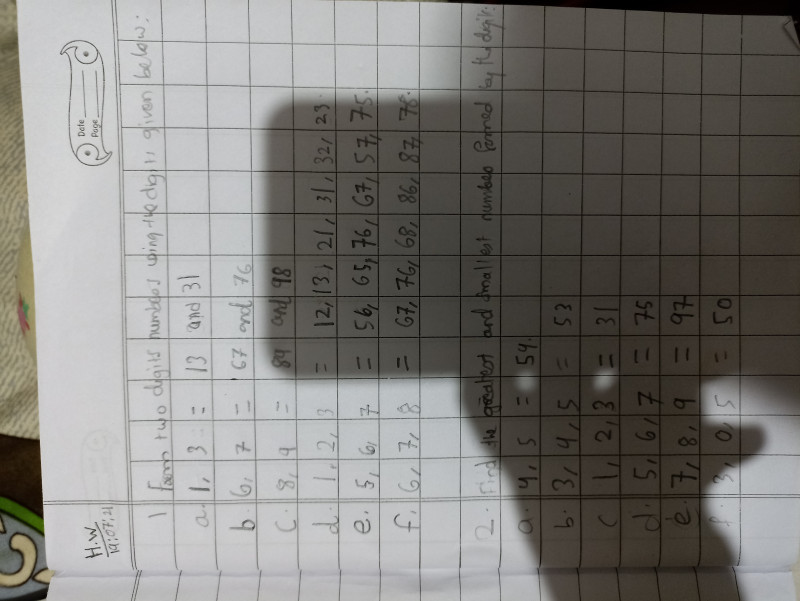 H.W
19:07:21
Date
Page
1 form two digits numbers using the digits given below:
a. 1, 3 = 13 and 31
b. 6, 7 = 67 and 76
c. 8, 9 = 89 and 98
d. 1, 2, 3 = 12, 13, 21, 31, 32, 23.
e. 5, 6, 7 = 56, 65, 76, 67, 57, 75.
f. 6, 7, 8 = 67, 76, 68, 86, 87, 78.
2. Find the greatest and smallest number formed by the digit.
a. 4, 5 = 54.
b. 3, 4, 5 = 53
c 1, 2, 3 = 31
d. 5, 6, 7 = 75
e. 7, 8, 9 = 97
f. 3, 0, 5 = 50